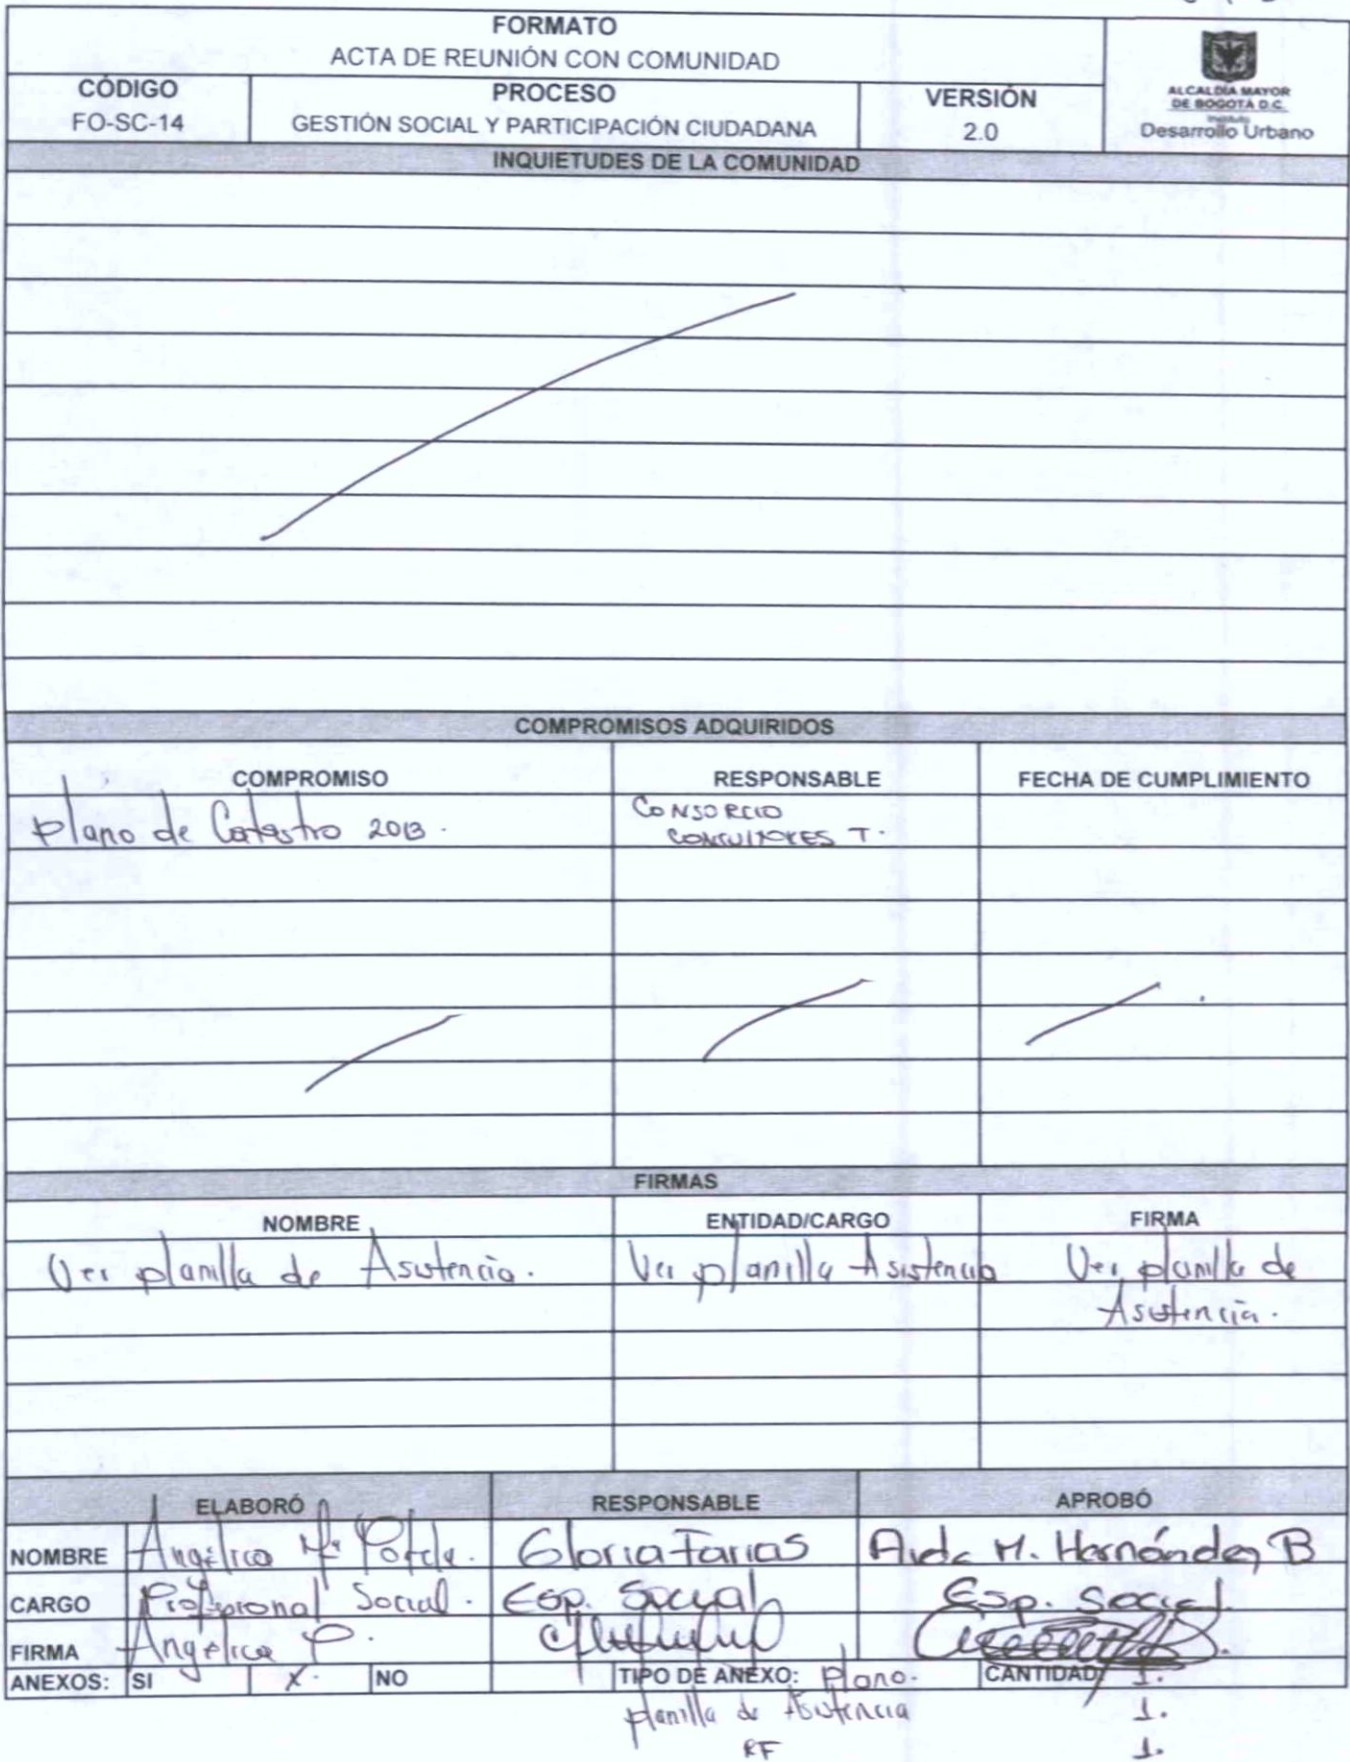 FORMATO
ACTA DE REUNIÓN CON COMUNIDAD
CÓDIGO
FO-SC-14
PROCESO
GESTIÓN SOCIAL Y PARTICIPACIÓN CIUDADANA
VERSIÓN
2.0
ALCALDÍA MAYOR
DE BOGOTÁ D.C.
Instituto
Desarrollo Urbano
INQUIETUDES DE LA COMUNIDAD
COMPROMISOS ADQUIRIDOS
COMPROMISO RESPONSABLE FECHA DE CUMPLIMIENTO
plano de Catastro 2013. CONSORCIO
T.
FIRMAS
NOMBRE ENTIDAD/CARGO FIRMA
Ver planilla de Asistencia. Ver planilla Asistencia Ver planilla de
Asistencia.
ELABORÓ RESPONSABLE APROBÓ
NOMBRE Angélica Mª Gloria Farias Aida M. Hernández B
CARGO Profesional Social. Esp. Social Esp. Social.
FIRMA Angélica P.
ANEXOS: SI X. NO TIPO DE ANEXO: plano. CANTIDAD 1.
planilla de Asistencia 1.
RF 1.